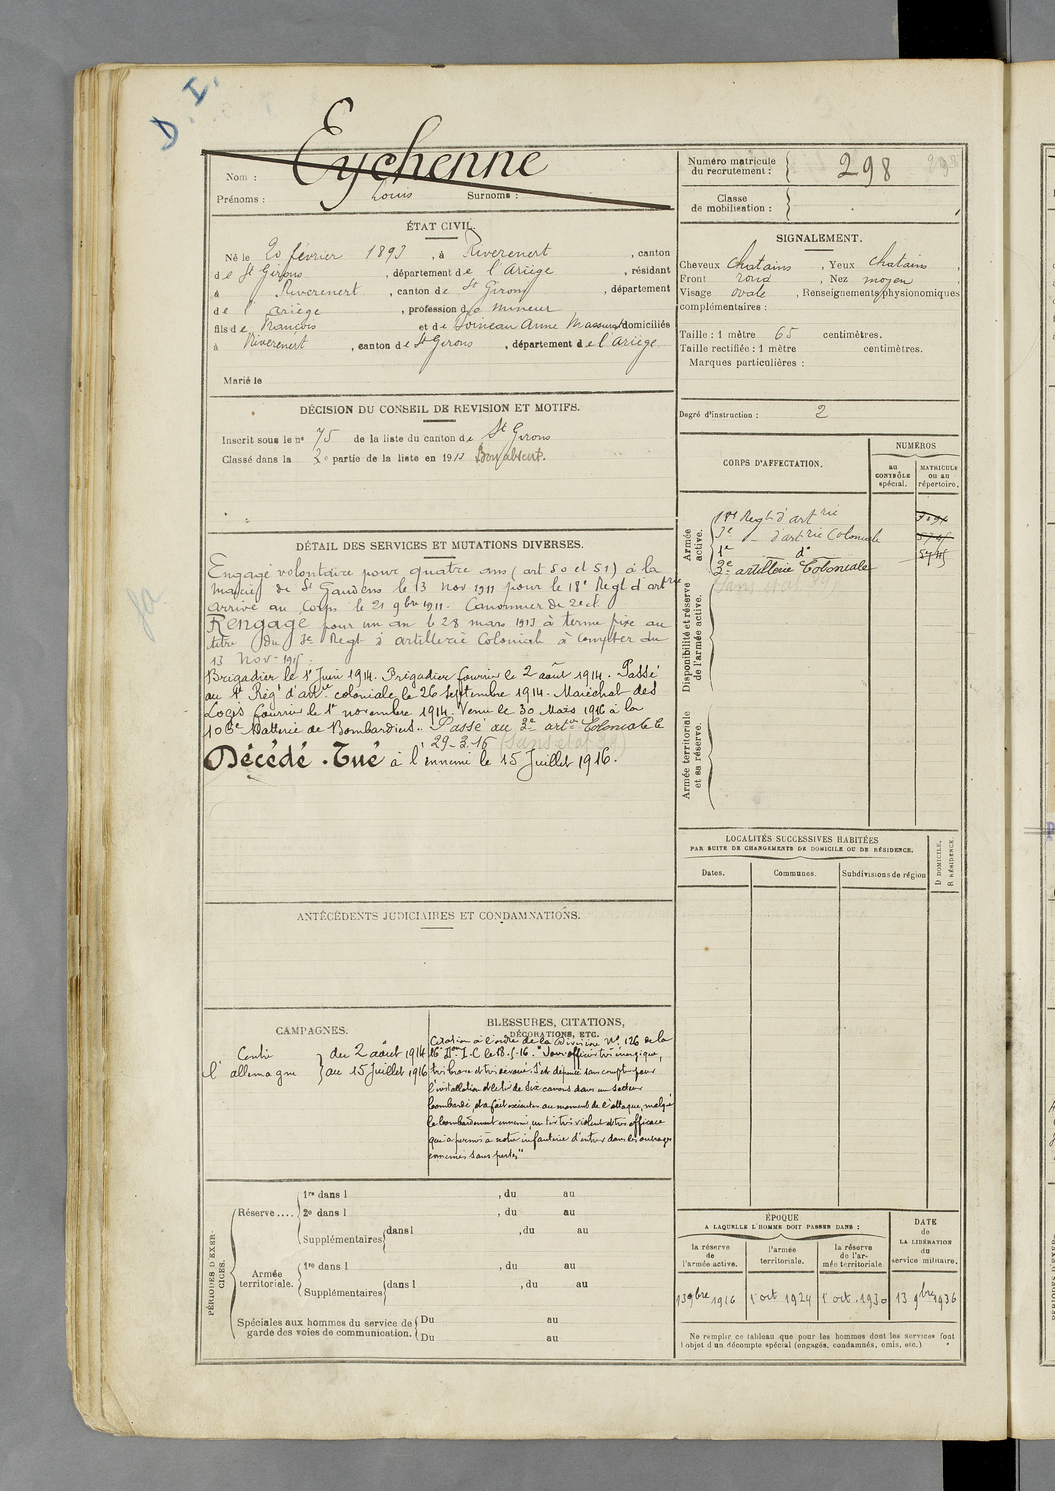 D. I.
Nom : Eychenne
Prénoms : Louis Surnoms :
Numéro matricule du recrutement : 298
Classe de mobilisation :
ÉTAT CIVIL.
Né le 20 février 1893, à Riverenert, canton
de St Girons, département de l'Ariège, résidant
à Riverenert, canton de St Girons, département
de l'ariège, profession de mineur
fils de François et de Soineau Anne Massurat domiciliés
à Riverenert, canton de St Girons, département de l'Ariège
Marié le
SIGNALEMENT.
Cheveux chatains, Yeux chatains,
Front rond, Nez moyen,
Visage ovale, Renseignements physionomiques
complémentaires :
Taille : 1 mètre 65 centimètres.
Taille rectifiée : 1 mètre centimètres.
Marques particulières :
Degré d'instruction : 2
DÉCISION DU CONSEIL DE REVISION ET MOTIFS.
Inscrit sous le no 75 de la liste du canton de St Girons
Classé dans la 3e partie de la liste en 1913 Bon absent.
DÉTAIL DES SERVICES ET MUTATIONS DIVERSES.
Engagé volontaire pour quatre ans (art 50 et 51) à la
mairie de St Gaudens le 13 nov 1911 pour le 18e Regt d'artrie
arrivé au Corps le 21 9bre 1911. Canonnier de 2e cl.
Rengagé pour un an le 28 mars 1913 à terme fixe au
titre du 3e Regt d'artillerie Coloniale à compter du
13 Nov 1915.
Brigadier le 1r Juin 1914. Brigadier fourrier le 2 août 1914. Passé
au 1r Rég' d'artie coloniale le 26 septembre 1914. Maréchal des
Logis fourrier le 1r novembre 1914. Venu le 30 Mars 1916 à la
106e Batterie de Bombardiers. Passé au 3e artie Coloniale le
29-3-16 (sans état 38)
Décédé. Tué à l'ennemi le 15 Juillet 1916.
CORPS D'AFFECTATION.
NUMÉROS
au CONTRÔLE spécial.
MATRICULE ou au répertoire.
Armée active.
18e Regt d'artrie
3e d'artrie Coloniale
1e do 5745
3e artillerie Coloniale
Disponibilité et réserve de l'armée active.
Armée territoriale et sa réserve.
LOCALITÉS SUCCESSIVES HABITÉES
PAR SUITE DE CHANGEMENTS DE DOMICILE OU DE RÉSIDENCE.
Dates. Communes. Subdivisions de région
D DOMICILE.
R RÉSIDENCE.
ANTÉCÉDENTS JUDICIAIRES ET CONDAMNATIONS.
CAMPAGNES.
Contre l'allemagne
du 2 août 1914
au 15 Juillet 1916
BLESSURES, CITATIONS,
DÉCORATIONS, ETC.
Citation à l'ordre de la Division No 126 de la
16e Don I.C le 18-5-16. "Sous officier très énergique,
très brave et très dévoué. S'est dépensé sans compter pour
l'installation et le tir de six canons dans un secteur
bombardé, et a fait exécuter au moment de l'attaque, malgré
le bombardement ennemi, un tir très violent et très efficace
qui a permis à notre infanterie d'entrer dans les ouvrages
ennemis sans pertes"
PÉRIODES D'EXERCICES.
Réserve....
1re dans l , du au
2e dans l , du au
Supplémentaires dans l , du au
Armée territoriale.
1re dans l , du au
Supplémentaires dans l , du au
Spéciales aux hommes du service de garde des voies de communication.
Du au
Du au
ÉPOQUE
A LAQUELLE L'HOMME DOIT PASSER DANS :
la réserve de l'armée active.
l'armée territoriale.
la réserve de l'armée territoriale
DATE de LA LIBÉRATION du service militaire.
13 9bre 1916
1r oct 1924
1r oct. 1930
13 9bre 1936
Ne remplir ce tableau que pour les hommes dont les services font
l'objet d'un décompte spécial (engagés, condamnés, omis, etc.)